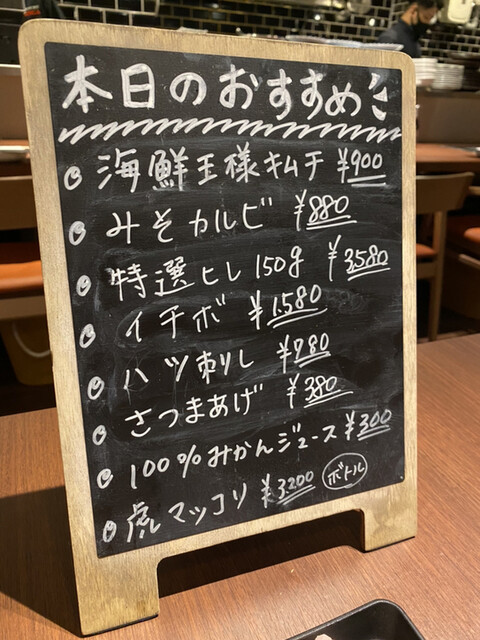 本日のおすすめ
海鮮王様キムチ ¥900
みそカルビ ¥880
特選ヒレ150g ¥3,580
イチボ ¥1,580
ハツ刺し ¥780
さつまあげ ¥380
100%みかんジュース ¥300
虎マッコリ ¥3,200 ボトル